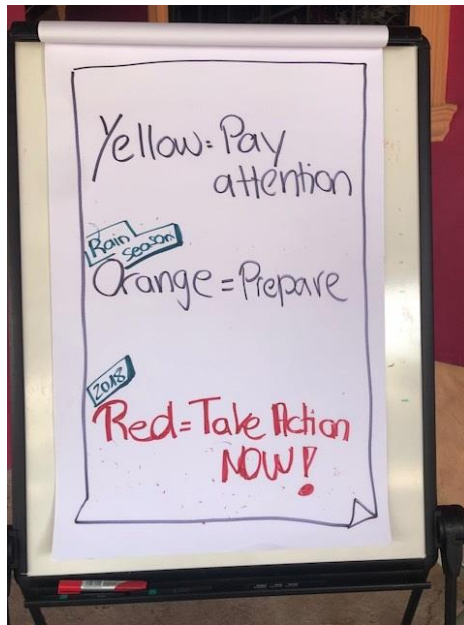 Yellow= Pay
attention
Rain
season
Orange = Prepare
2018
Red= Take Action
NOW!